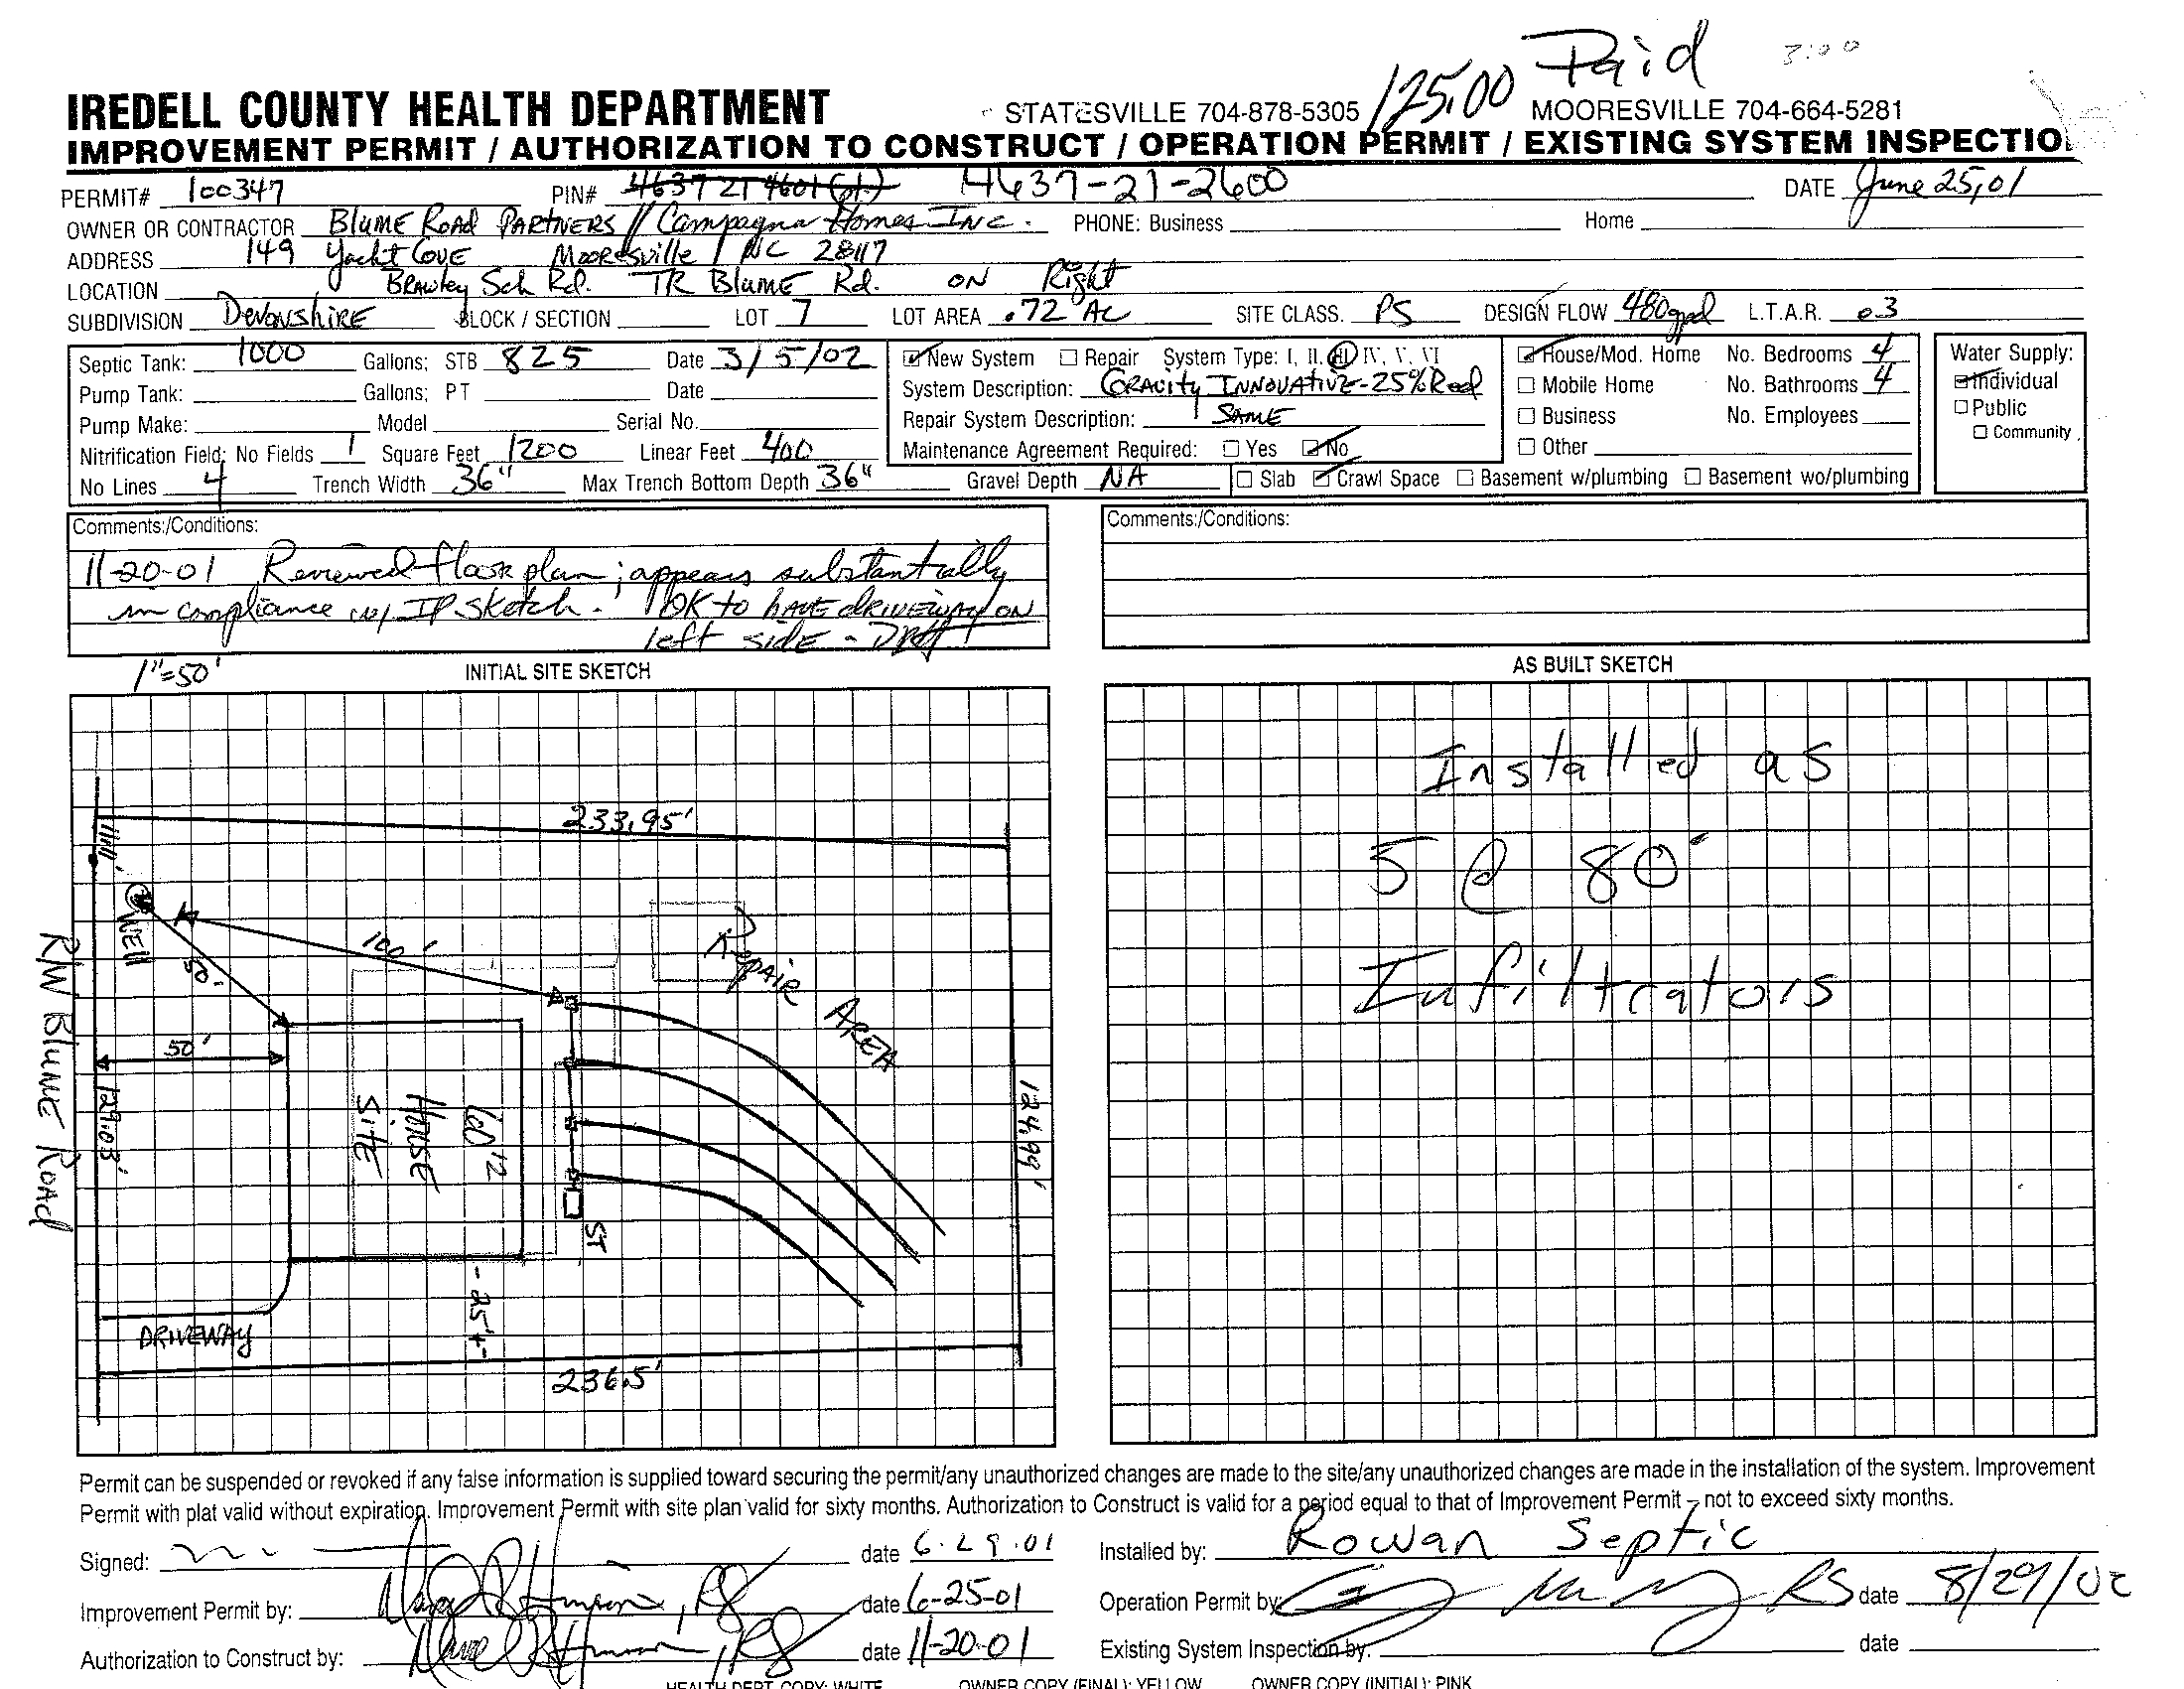 Paid 3:00
125.00
IREDELL COUNTY HEALTH DEPARTMENT STATESVILLE 704-878-5305 MOORESVILLE 704-664-5281
IMPROVEMENT PERMIT / AUTHORIZATION TO CONSTRUCT / OPERATION PERMIT / EXISTING SYSTEM INSPECTIO
PERMIT# 100347 PIN# 4637 21 4601 (pt.) 4637-21-2600 DATE June 25,01
OWNER OR CONTRACTOR BLUME ROAD PARTNERS // Campagna Homes INC. PHONE: Business Home
ADDRESS 149 Yacht COVE Mooresville / NC 28117
LOCATION BRAWley Sch Rd. TR BLUME Rd. ON Right
SUBDIVISION DEVONSHIRE BLOCK / SECTION LOT 7 LOT AREA .72 AC SITE CLASS. PS DESIGN FLOW 480gpd L.T.A.R. .3
Septic Tank: 1000 Gallons; STB 825 Date 3/5/02
Pump Tank: Gallons; PT Date
Pump Make: Model Serial No.
Nitrification Field: No Fields 1 Square Feet 1200 Linear Feet 400
No Lines 4 Trench Width 36" Max Trench Bottom Depth 36" Gravel Depth NA
New System Repair System Type: I, II, III, IV, V, VI
System Description: GRAVITY INNOVATIVE-25% Red
Repair System Description: SAME
Maintenance Agreement Required: Yes No
Slab Crawl Space Basement w/plumbing Basement wo/plumbing
House/Mod. Home No. Bedrooms 4
Mobile Home No. Bathrooms 4
Business No. Employees
Other
Water Supply:
Individual
Public
Community
Comments:/Conditions:
11-20-01 Reviewed floor plan; appears substantially
in compliance w/ IP sketch. OK to HAVE DRIVEWAY ON
left side -
Comments:/Conditions:
1"=50' INITIAL SITE SKETCH
233.95'
WELL
100'
50'
50'
R/W BLUME ROAD
129.03'
HOUSE
SITE
ST
REPAIR
AREA
124.99'
25'+
DRIVEWAY
236.5'
AS BUILT SKETCH
Installed as
5 @ 80'
Infiltrators
Permit can be suspended or revoked if any false information is supplied toward securing the permit/any unauthorized changes are made to the site/any unauthorized changes are made in the installation of the system. Improvement
Permit with plat valid without expiration. Improvement Permit with site plan valid for sixty months. Authorization to Construct is valid for a period equal to that of Improvement Permit – not to exceed sixty months.
Signed: date 6.29.01
Improvement Permit by: RS date 6-25-01
Authorization to Construct by: RS date 11-20-01
Installed by: Rowan Septic
Operation Permit by: RS date 8/29/02
Existing System Inspection by: date
HEALTH DEPT. COPY: WHITE OWNER COPY (FINAL): YELLOW OWNER COPY (INITIAL): PINK